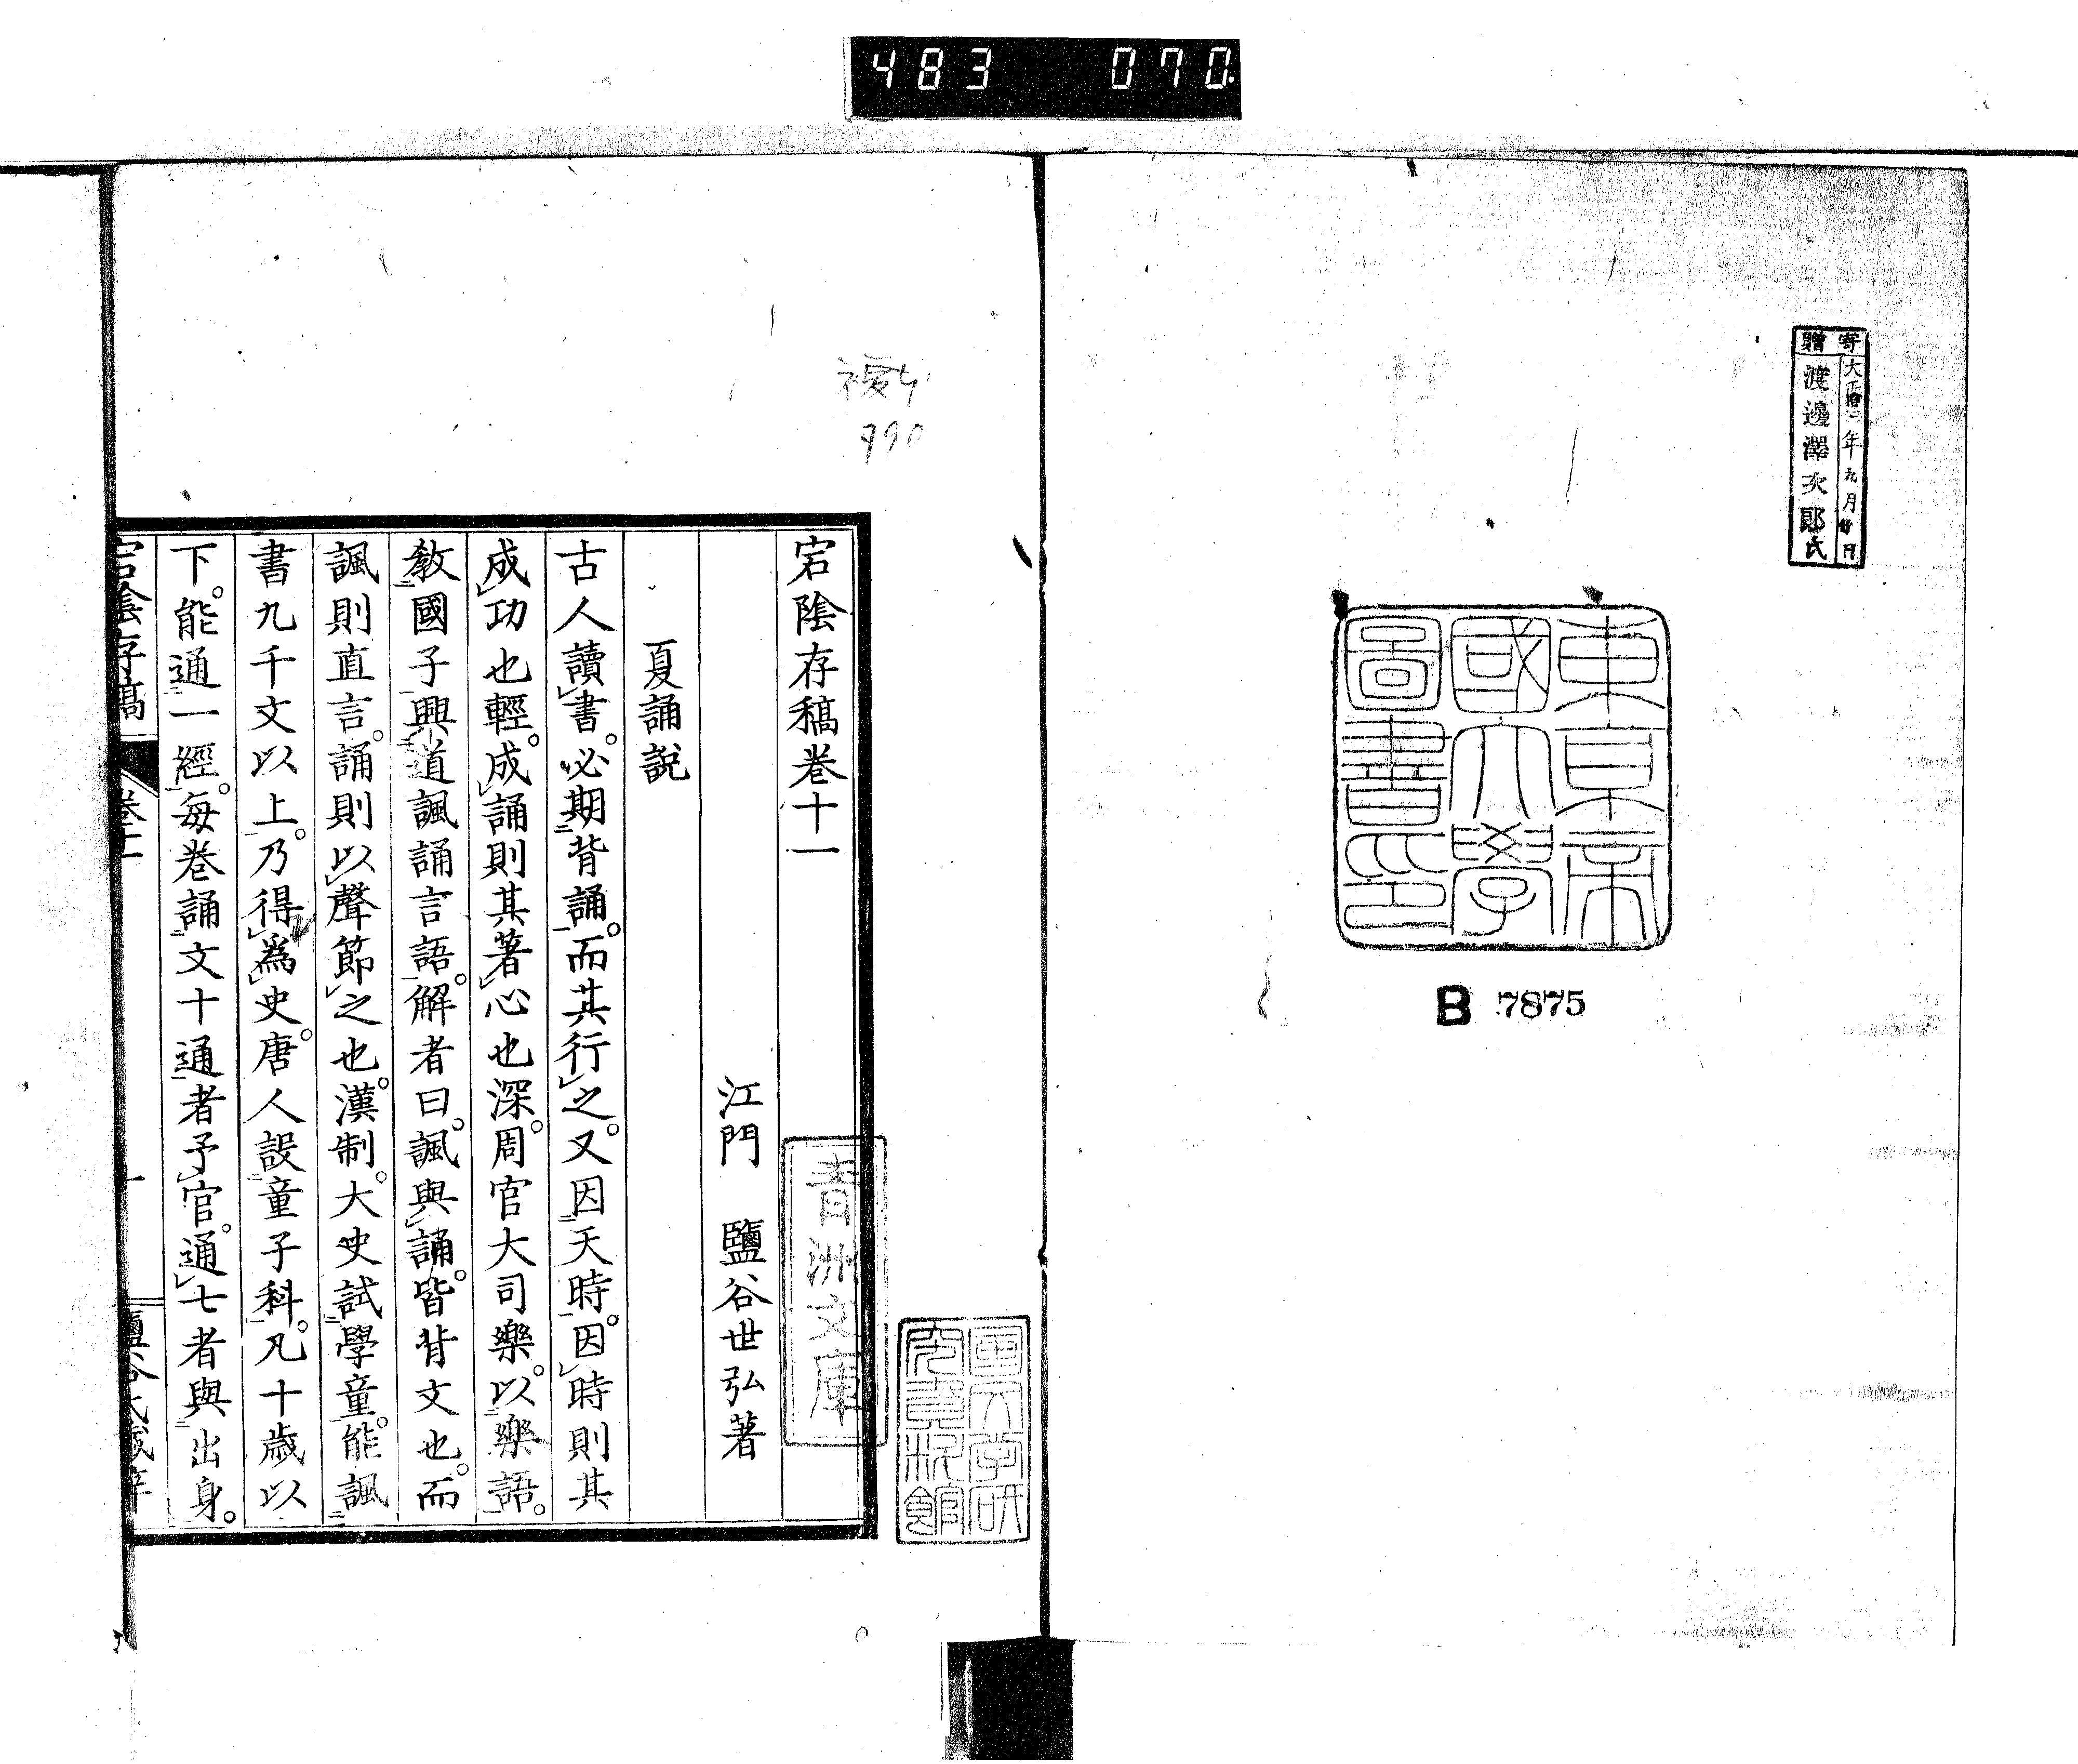 483 070
寄贈
大正
年九月廿日
渡邊澤次郎氏
東京帝
國大學
圖書印
B 7875
複写
990
國文学研
究資料館
青洲文庫
宕陰存稿巻十一
江門 鹽谷世弘著
夏誦說
古人讀書。必期背誦。而其行之。又因天時。因時則其
成功也輕。成誦則其著心也深。周官大司樂。以樂語。
教國子興道諷誦言語。解者曰。諷與誦。皆背文也。而
諷則直言。誦則以聲節之也。漢制。大史試學童。能諷
書九千文以上。乃得爲史。唐人設童子科。凡十歲以
下。能通一經。每卷誦文十通者予官。通七者與出身。
宕陰存稿 卷十一 一 鹽谷氏藏梓